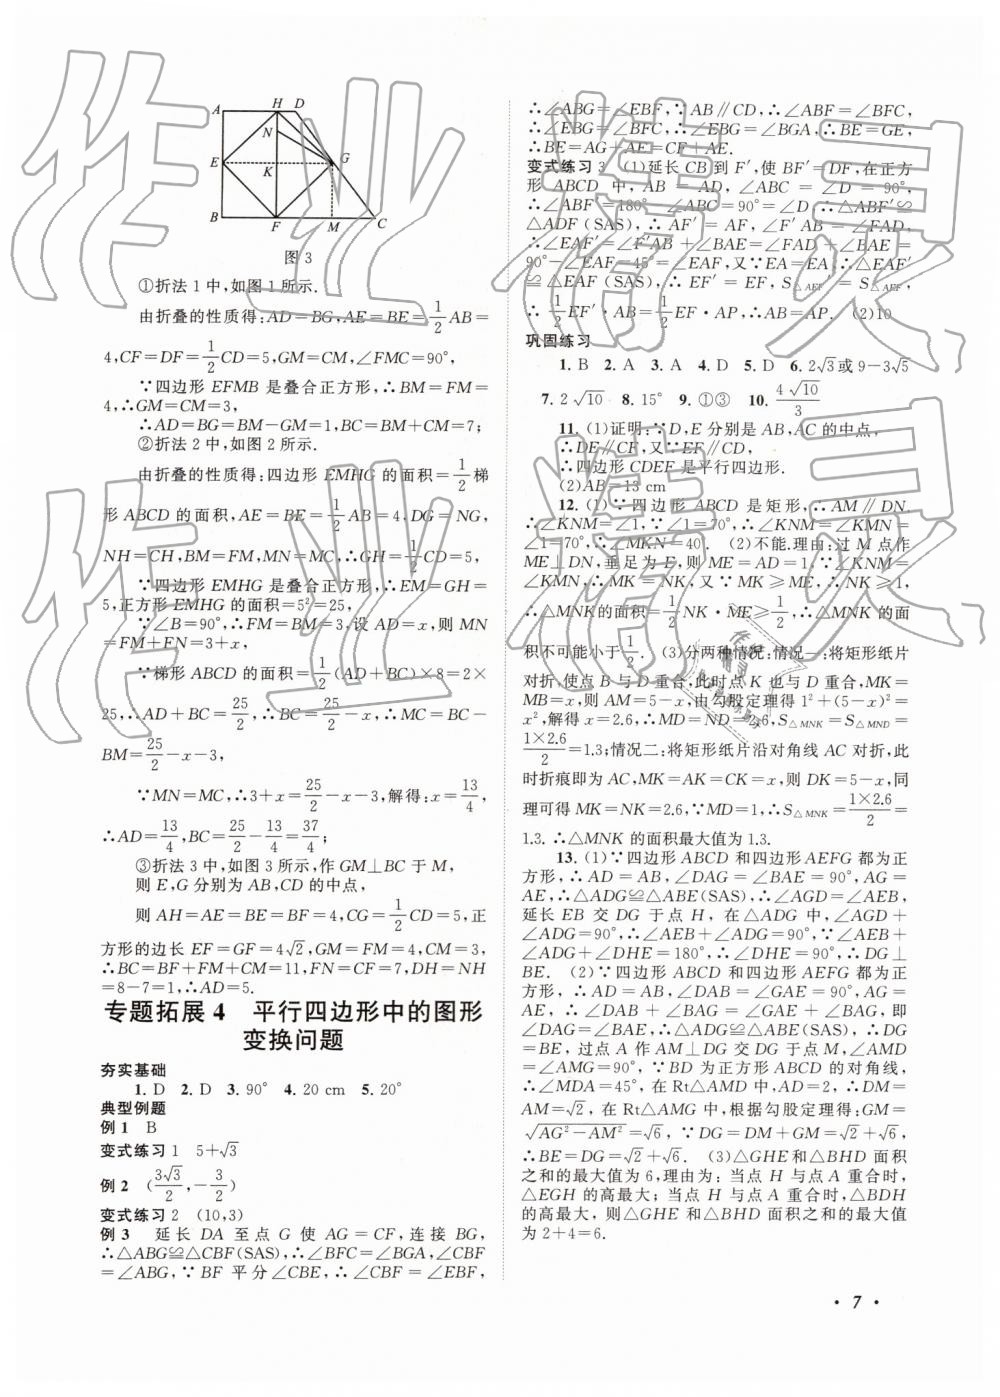 A H D
N
E G
K
B F M C
图 3
①折法 1 中,如图 1 所示.
由折叠的性质得:AD=BG,AE=BE=1/2AB=
4,CF=DF=1/2CD=5,GM=CM,∠FMC=90°,
∵四边形 EFMB 是叠合正方形,∴BM=FM=
4,∴GM=CM=3,
∴AD=BG=BM-GM=1,BC=BM+CM=7;
②折法 2 中,如图 2 所示.
由折叠的性质得:四边形 EMHG 的面积=1/2梯
形 ABCD 的面积,AE=BE=1/2AB=4,DG=NG,
NH=CH,BM=FM,MN=MC,∴GH=1/2CD=5,
∵四边形 EMHG 是叠合正方形,∴EM=GH=
5,正方形 EMHG 的面积=5²=25,
∵∠B=90°,∴FM=BM=3,设 AD=x,则 MN
=FM+FN=3+x,
∵梯形 ABCD 的面积=1/2(AD+BC)×8=2×
25,∴AD+BC=25/2,∴BC=25/2-x,∴MC=BC-
BM=25/2-x-3,
∵MN=MC,∴3+x=25/2-x-3,解得:x=13/4,
∴AD=13/4,BC=25/2-13/4=37/4;
③折法 3 中,如图 3 所示,作 GM⊥BC 于 M,
则 E,G 分别为 AB,CD 的中点,
则 AH=AE=BE=BF=4,CG=1/2CD=5,正
方形的边长 EF=GF=4√2,GM=FM=4,CM=3,
∴BC=BF+FM+CM=11,FN=CF=7,DH=NH
=8-7=1,∴AD=5.
专题拓展 4 平行四边形中的图形
变换问题
夯实基础
1. D 2. D 3. 90° 4. 20 cm 5. 20°
典型例题
例 1 B
变式练习 1 5+√3
例 2 (3√3/2,-3/2)
变式练习 2 (10,3)
例 3 延长 DA 至点 G 使 AG=CF,连接 BG,
∴△ABG≌△CBF(SAS),∴∠BFC=∠BGA,∠CBF
=∠ABG,∵BF 平分∠CBE,∴∠CBF=∠EBF,
∴∠ABG=∠EBF,∵AB∥CD,∴∠ABF=∠BFC,
∴∠EBG=∠BFC,∴∠EBG=∠BGA,∴BE=GE,
∴BE=AG+AE=CF+AE.
变式练习 3 (1)延长 CB 到 F′,使 BF′=DF,在正方
形 ABCD 中,AB=AD,∠ABC=∠D=90°,
∴∠ABF′=180°-∠ABC=90°=∠D,∴△ABF′≌
△ADF(SAS),∴AF′=AF,∠F′AB=∠FAD,
∴∠EAF′=∠F′AB+∠BAE=∠FAD+∠BAE=
90°-∠EAF=45°=∠EAF,又∵EA=EA,∴△EAF′
≌△EAF(SAS),∴EF′=EF,S△AEF′=S△AEF,
∴1/2EF′·AB=1/2EF·AP,∴AB=AP. (2)10
巩固练习
1. B 2. A 3. A 4. D 5. D 6. 2√3或9-3√5
7. 2√10 8. 15° 9. ①③ 10. 4√10/3
11. (1)证明:∵D,E 分别是 AB,AC 的中点,
∴DE∥CF,又∵EF∥DC,
∴四边形 CDEF 是平行四边形.
(2)AB=13 cm
12. (1)∵四边形 ABCD 是矩形,∴AM∥DN,
∴∠KNM=∠1,∵∠1=70°,∴∠KNM=∠KMN=
∠1=70°,∴∠MKN=40°. (2)不能.理由:过 M 点作
ME⊥DN,垂足为 E,则 ME=AD=1,∵∠KNM=
∠KMN,∴MK=NK,又∵MK≥ME,∴NK≥1,
∴△MNK的面积=1/2NK·ME≥1/2,∴△MNK 的面
积不可能小于1/2. (3)分两种情况:情况一:将矩形纸片
对折,使点 B 与 D 重合,此时点 K 也与 D 重合,MK=
MB=x,则 AM=5-x,由勾股定理得 1²+(5-x)²=
x²,解得 x=2.6,∴MD=ND=2.6,S△MNK=S△MND=
1×2.6/2=1.3;情况二:将矩形纸片沿对角线 AC 对折,此
时折痕即为 AC,MK=AK=CK=x,则 DK=5-x,同
理可得 MK=NK=2.6,∵MD=1,∴S△MNK=1×2.6/2=
1.3. ∴△MNK 的面积最大值为 1.3.
13. (1)∵四边形 ABCD 和四边形 AEFG 都为正
方形,∴AD=AB,∠DAG=∠BAE=90°,AG=
AE,∴△ADG≌△ABE(SAS),∴∠AGD=∠AEB,
延长 EB 交 DG 于点 H,在△ADG 中,∠AGD+
∠ADG=90°,∴∠AEB+∠ADG=90°,∵∠AEB+
∠ADG+∠DHE=180°,∴∠DHE=90°,∴DG⊥
BE. (2)∵四边形 ABCD 和四边形 AEFG 都为正方
形,∴AD=AB,∠DAB=∠GAE=90°,AG=
AE,∴∠DAB+∠BAG=∠GAE+∠BAG,即
∠DAG=∠BAE,∴△ADG≌△ABE(SAS),∴DG
=BE,过点 A 作 AM⊥DG 交 DG 于点 M,∠AMD
=∠AMG=90°,∵BD 为正方形 ABCD 的对角线,
∴∠MDA=45°,在 Rt△AMD 中,AD=2,∴DM=
AM=√2,在 Rt△AMG 中,根据勾股定理得:GM=
√AG²-AM²=√6,∵DG=DM+GM=√2+√6,
∴BE=DG=√2+√6. (3)△GHE和△BHD 面积
之和的最大值为 6,理由为:当点 H 与点 A 重合时,
△EGH 的高最大;当点 H 与点 A 重合时,△BDH
的高最大,则△GHE 和△BHD 面积之和的最大值
为 2+4=6.
• 7 •
作业精灵
作业精灵